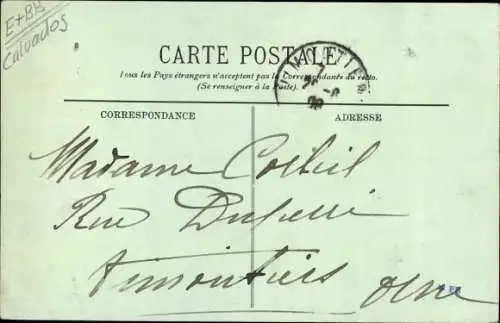 E+BB
Calvados
CARTE POSTALE
Tous les Pays étrangers n'acceptent pas la Correspondance au recto.
(Se renseigner à la Poste).
CORRESPONDANCE
ADRESSE
Madame Corbeil
Rue
Vimoutiers
Orne